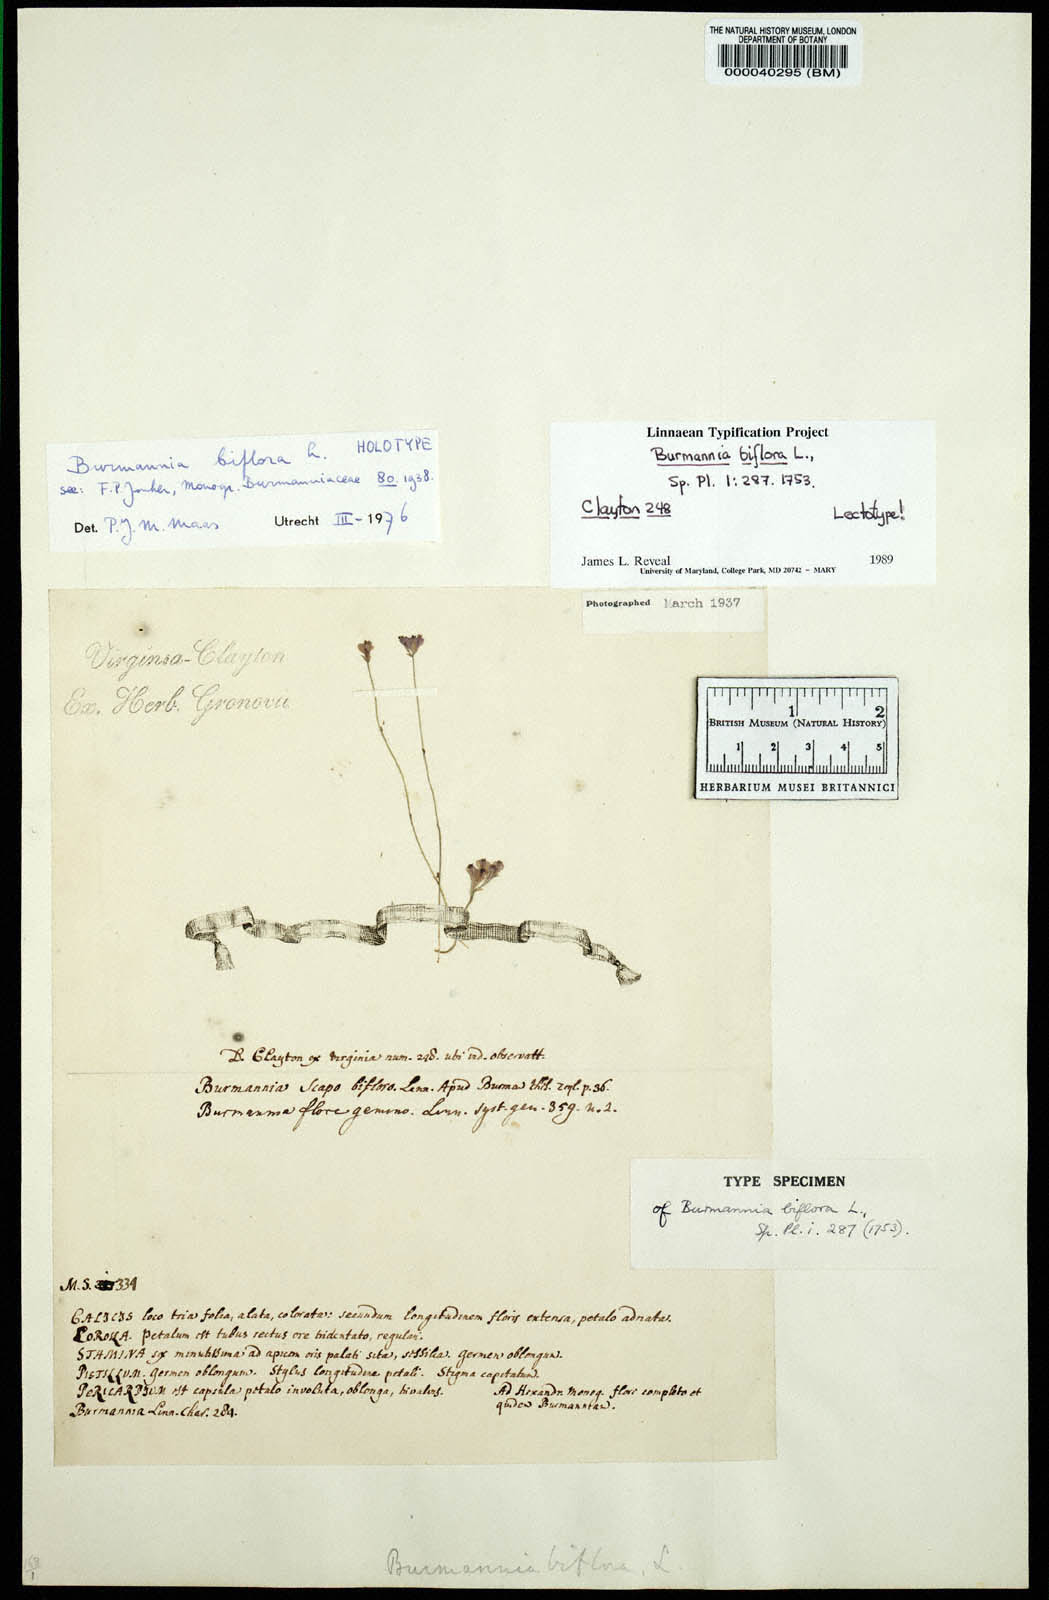 THE NATURAL HISTORY MUSEUM, LONDON
DEPARTMENT OF BOTANY
000040295 (BM)
Burmannia biflora L. HOLOTYPE
see: F.P. Jonker, Monogr. Burmanniaceae 80. 1938.
Det. P.J.M. Maas Utrecht III-1976
Linnaean Typification Project
Burmannia biflora L.,
Sp. Pl. 1: 287. 1753.
Clayton 248 Lectotype!
James L. Reveal 1989
University of Maryland, College Park, MD 20742 - MARY
Photographed March 1937
Virginia-Clayton
Ex. Herb. Gronovii
1 2
BRITISH MUSEUM (NATURAL HISTORY)
1 2 3 4 5
HERBARIUM MUSEI BRITANNICI
D. Clayton ex Virginia num. 248. ubi vid. observatt.
Burmannia Scapo bifloro. Linn. Apud Burma thes. zeyl. p. 36.
Burmannia flore gemino. Linn. Syst. gen. 359. n. 2.
TYPE SPECIMEN
of Burmannia biflora L.,
Sp. Pl. i. 287 (1753).
M.S. 334
CALICIS loco tria folia, alata, colorata: secundum longitudinem floris extensa, petalo adnata.
COROLLA. Petalum est tubus rectus ore tridentato, regulari.
STAMINA sex minutissima ad apicem oris petali sita, sessilia. Germen oblongum.
PISTILLUM. Germen oblongum. Stylus longitudine petali. Stigma capitatum.
PERICARPIUM est capsula petalo involuta, oblonga, bivalvis. Ad Hexandr. monog. flore completo et
Burmannia Linn. Char. 284. quidem Burmanniae.
Burmannia biflora, L.